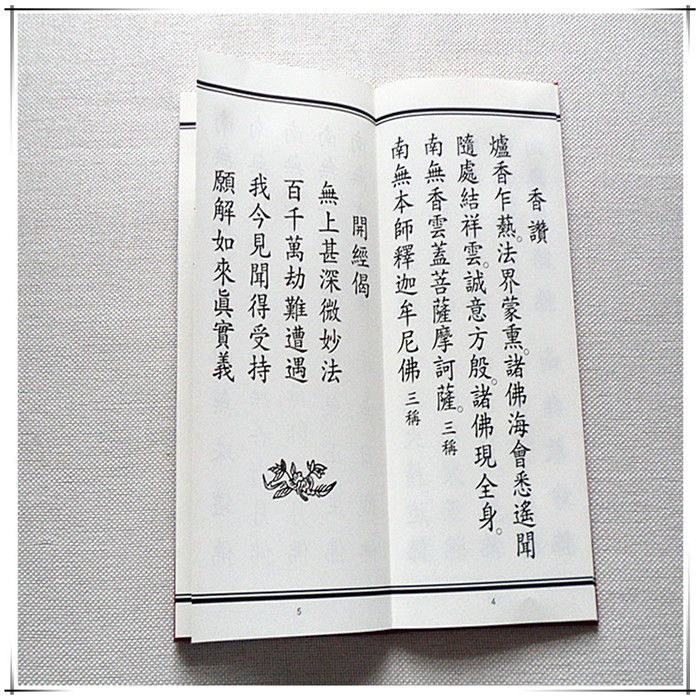 香讚
爐香乍爇。法界蒙熏。諸佛海會悉遙聞
隨處結祥雲。誠意方殷。諸佛現全身。
南無香雲蓋菩薩摩訶薩。三稱
南無本師釋迦牟尼佛 三稱
4
開經偈
無上甚深微妙法
百千萬劫難遭遇
我今見聞得受持
願解如來眞實義
5